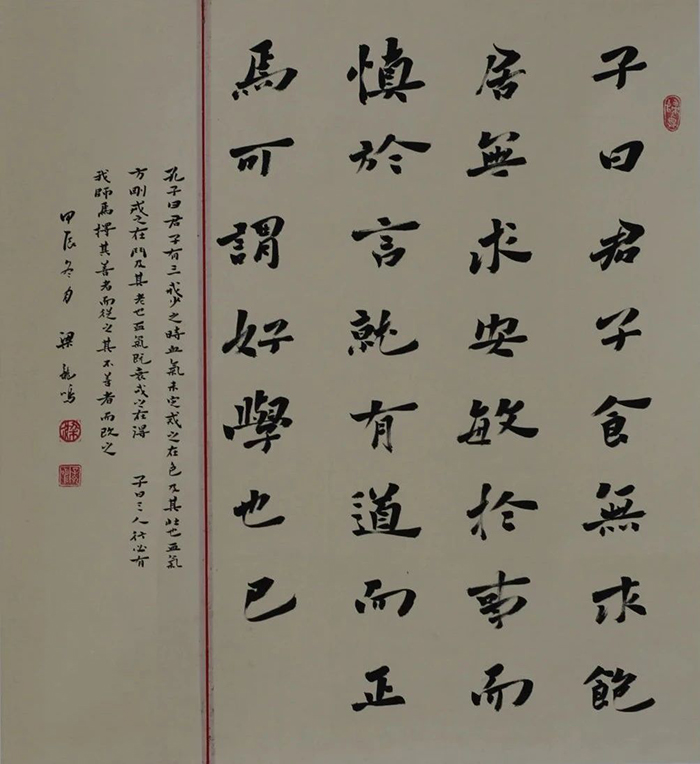 子曰君子食無求飽
居無求安敏於事而
慎於言就有道而正
焉可謂好學也已
孔子曰君子有三戒少之時血氣未定戒之在色及其壯也血氣
方剛戒之在鬥及其老也血氣既衰戒之在得 子曰三人行必有
我師焉擇其善者而從之其不善者而改之
甲辰冬月 梁龍鳴